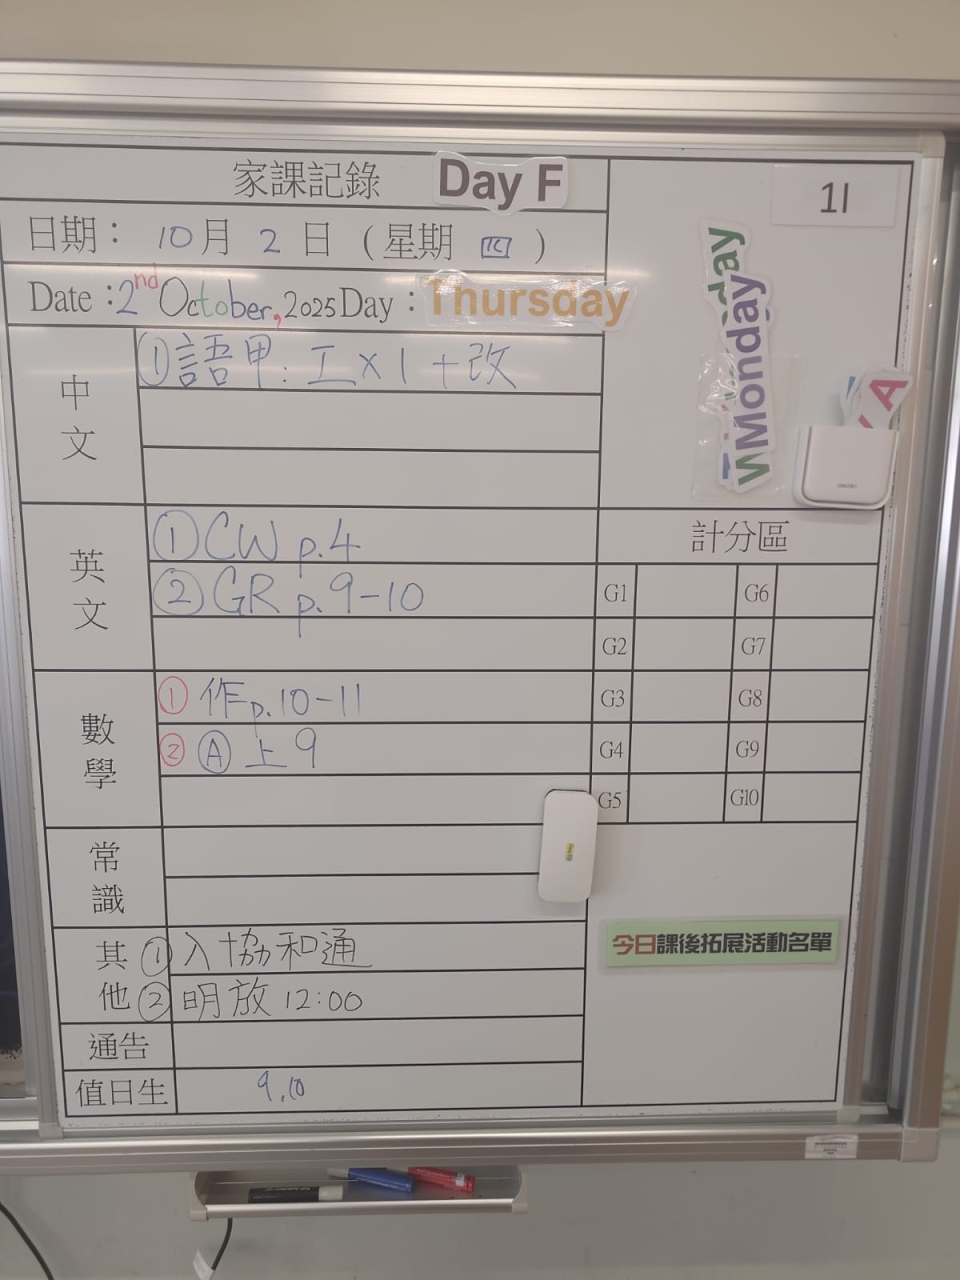 家課記錄 Day F
1I
日期： 10月 2 日 (星期 四 )
Date : 2nd October, 2025 Day : Thursday
Monday
A
中文
①語甲: 工x1+改
英文
①CW p.4
②GR p.9-10
計分區
G1 G6
G2 G7
G3 G8
G4 G9
G5 G10
數學
① 作p.10-11
② Ⓐ上9
常識
其他
①入協和通
②明放12:00
今日課後拓展活動名單
通告
值日生 9,10